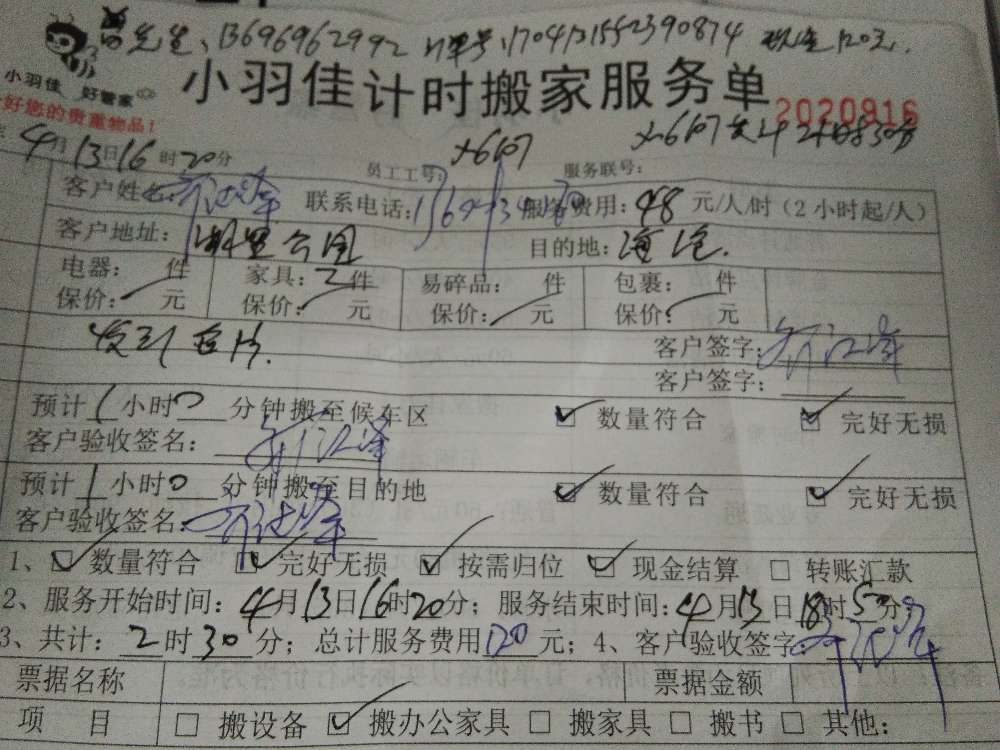 先生、13696962992 订单号、1704131552390874 现金120元.
小羽佳 好管家
好您的贵重物品!
小羽佳计时搬家服务单
2020916
4月13日16时20分 员工工号: X6107 服务联号: X-6107
客户姓名: 联系电话: 服务费用: 48 元/人/时(2小时起/人)
客户地址: 湖里公园 目的地: 海沧.
电器: 件 家具: 2件 易碎品: 件 包裹: 件
保价: 元 保价: 元 保价: 元 保价: 元
客户签字:
客户签字:
预计1小时0分钟搬至候车区 ☑ 数量符合 ☑ 完好无损
客户验收签名:
预计1小时0分钟搬至目的地 ☑ 数量符合 ☑ 完好无损
客户验收签名:
1、☑ 数量符合 ☑ 完好无损 ☑ 按需归位 ☑ 现金结算 □ 转账汇款
2、服务开始时间: 4月13日16时20分; 服务结束时间: 4月13日18时50分;
3、共计: 2时30分; 总计服务费用120元; 4、客户验收签字:
票据名称 票据金额
项 目 □ 搬设备 ☑ 搬办公家具 □ 搬家具 □ 搬书 □ 其他: